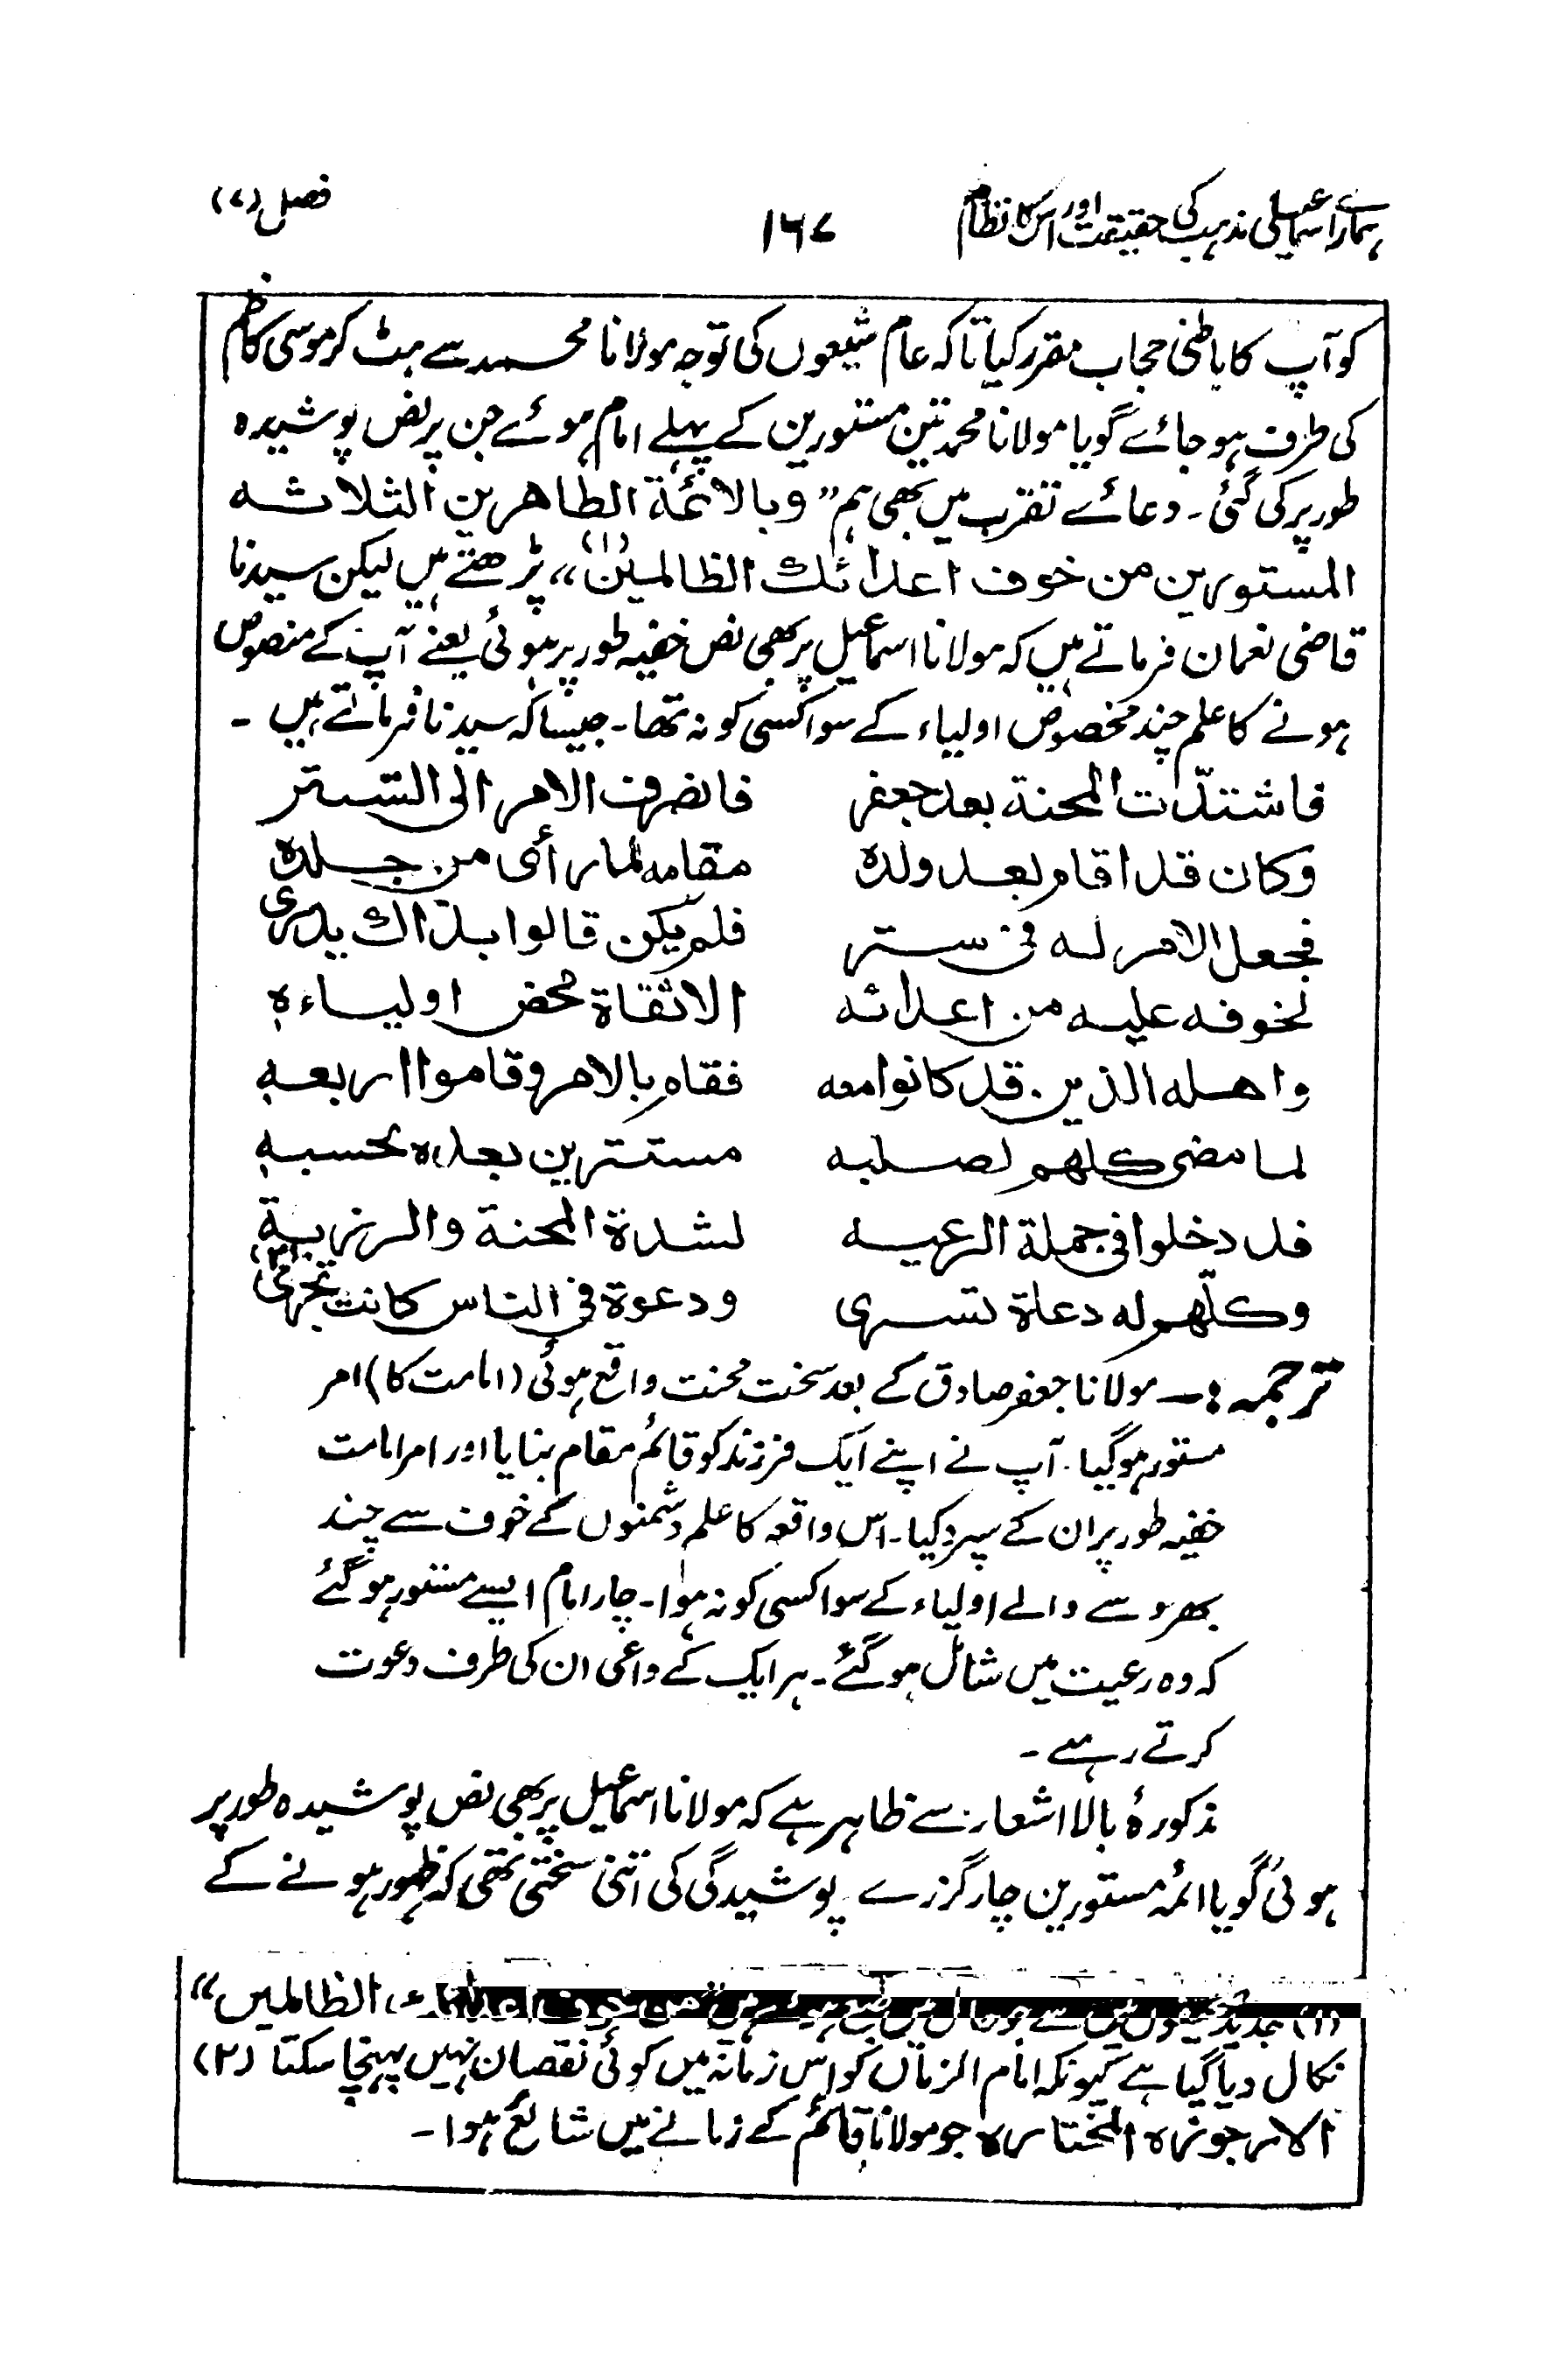 ہمارے اسماعیلی مذہب کی حقیقت اور اس کا نظام ۱۶۷ فصل (۷)
کو آپ کا باطنی حجاب مقرر کیا تاکہ عام شیعوں کی توجہ مولانا محمد سے ہٹ کر موسی کاظم
کی طرف ہو جائے گویا مولانا محمد تین مستورین کے پہلے امام ہوئے جن پر نص پوشیدہ
طور پر کی گئی۔ دعائے تقرب میں بھی ہم ”وبالائمۃ الطاھرین الثلاثہ
المستورین من خوف اعدائک الظالمین(۱)“ پڑھتے ہیں لیکن سیدنا
قاضی نعمان فرماتے ہیں کہ مولانا اسماعیل پر بھی نص خفیہ طور پر ہوئی یعنے آپ کے منصوص
ہونے کا علم چند مخصوص اولیاء کے سوا کسی کو نہ تھا۔ جیسا کہ سیدنا فرماتے ہیں ۔
فاشتدّت المحنۃ بعد جعفر فانصرف الامر الی التستر
وکان قد اقام بعد ولدہ مقامہ لما رأی من جلدہ
فجعل الامر لہ فی ستر فلم یکن قالوا بذاک یدری
لخوفہ علیہ من اعدائہ الا ثقاۃ محض اولیاءہ
واھلہ الذین قد کانوا معہ فقام بالامر وقاموا اربعہ
لما مضی کلھم لصلبہ مستترین بعدہ بحسبہ
قد دخلوا فی جملۃ الرعیہ لشدۃ المحنۃ والرزیۃ
وکلّھم لہ دعاۃ تسری ودعوۃ فی الناس کانت تجری(۲)
ترجمہ :۔ مولانا جعفر صادق کے بعد سخت محنت واقع ہوئی (امامت کا) امر
مستور ہو گیا۔ آپ نے اپنے ایک فرزند کو قائم مقام بنایا اور امر امامت
خفیہ طور پر ان کے سپرد کیا۔ اس واقعہ کا علم دشمنوں کے خوف سے چند
بھروسے والے اولیاء کے سوا کسی کو نہ ہوا۔ چار امام ایسے مستور ہو گئے
کہ وہ رعیت میں شامل ہو گئے۔ ہر ایک کے داعی ان کی طرف دعوت
کرتے رہے ۔
مذکورۂ بالا اشعار سے ظاہر ہے کہ مولانا اسماعیل پر بھی نص پوشیدہ طور پر
ہوئی گویا ائمہ مستورین چار گزرے پوشیدگی کی اتنی سختی تھی کہ ظہور ہونے کے
(۱) جدید صحیفوں میں سے جو حال میں طبع ہوئے ہیں ”من خوف اعدائک الظالمین“
نکال دیا گیا ہے کیونکہ امام الزماں کو اس زمانہ میں کوئی نقصان نہیں پہنچا سکتا (۲)
الارجوزہ المختارہ جو مولانا قائم کے زمانے میں شائع ہوا۔